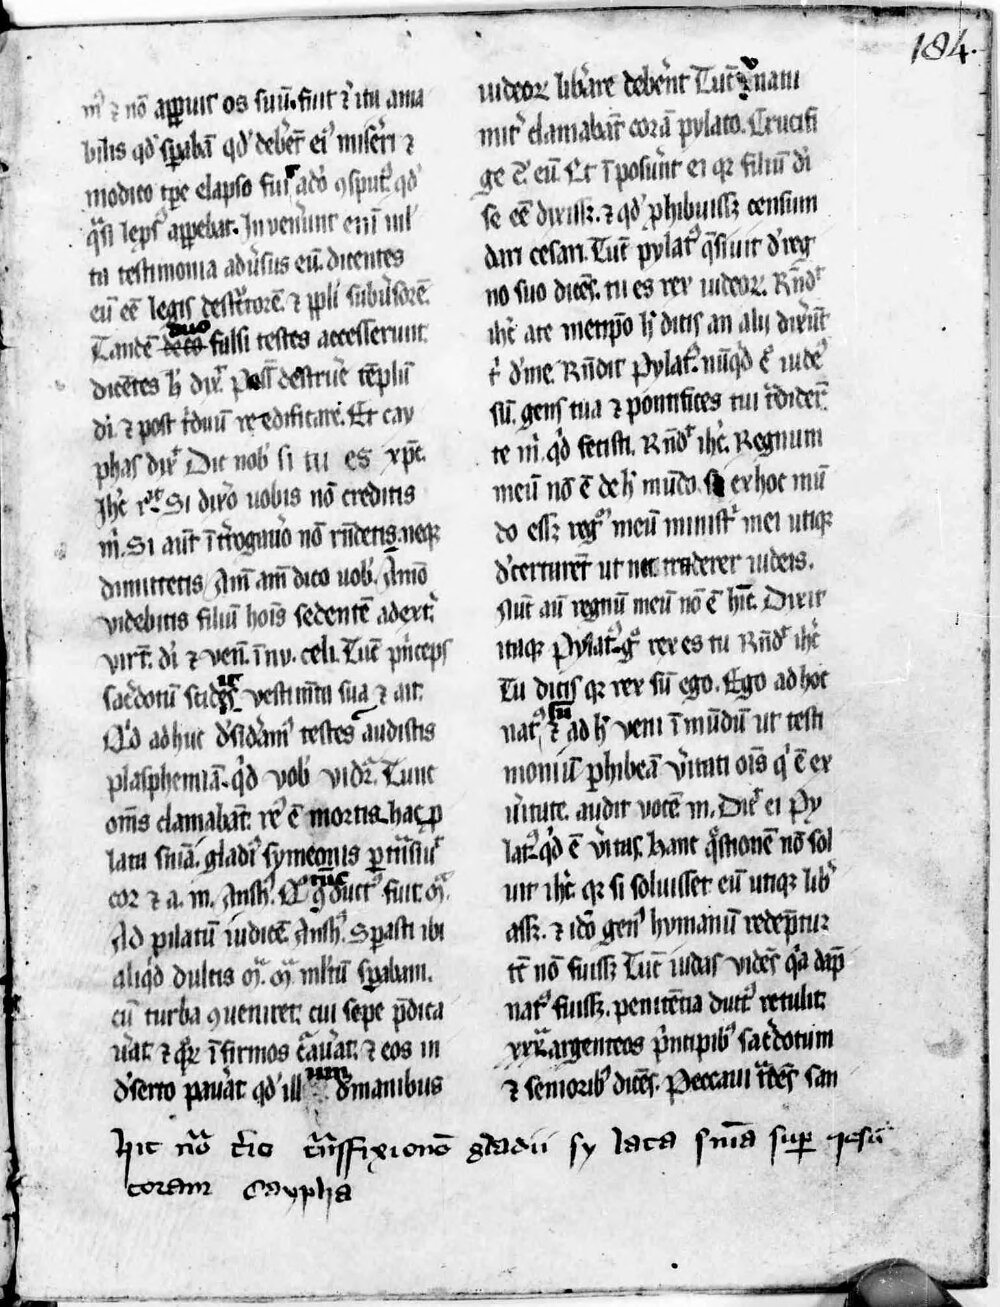 184.
m̄ ⁊ nō aꝑuit os suū. fuit ⁊ ita ama
bilis qd̕ sꝑabā qd̕ deberēt ei᷒ miseri ⁊
modico tꝑe elapso fuit adeo ꝯsput᷒ qd̕
q̄si lep̄s᷒ aꝑebat. Inuenerunt enī ml̕
ta testimonia adusus eū. dicentes
eū eē legis destͨtorē. ⁊ ppl̕i subusorē.
Tandē duo falsi testes accesserunt.
dicētes h̕ dix̕ Possū destrue tēplū
di̕ ⁊ post t̕duū reedificare. Et cay
phas dix̕ Dic nob̕ si tu es xp̄c.
Ihc̄ r̄t. Si dixo uobis nō creditis
m̕. Si aut̄ īt̕rogauo nō rn̄detis. neqꝫ
dimittetis Am̄ am̄ dico uob̕. Amō
videbitis filiū hoīs sedentē adext̕.
virt̄. di̕ ⁊ ven̄. ī nu. celi. Tūc p̕nceps
sac̕dotū scidit vestimēta sua ⁊ ait.
Q̕d adhuc d̕sid̕am᷒ testes audistis
plasphemiā. q̕d vob̕ videt̕. Tunc
om̄s clamabāt. re᷒ ē mortis. hac ꝓ
lata sn̄ia. gladi᷒ symeonis ꝑt̄nsiuit
cor ⁊ a. m. Ansh̕. Q᷒ tūc duct᷒ fuit. M̄.
Ad pilatū iudicē. Ansh̕. Sꝑasti ibi
aliq̕d dulcis M̄. M̄ ml̕tū sꝑabam.
cū turba ꝯueniret. cui sepe p̄dica
u̕at. ⁊ qꝝ īfirmos cu̕auat. ⁊ eos in
d̕serto pau̕at qd̕ illum d̕ manibus
iudeoꝝ lib̕are deberent Tūc v̕natu
mit̕ clamabāt corā pylato. Crucifi
ge c̄. eū. Et īposuerūt ei qꝛ filiū di̕
se eē dixissꝫ. ⁊ qd̕ ꝓhibuissꝫ censum
dari cesari. Tūc pylat᷒ q̄siuit d̕ reg
no suo dicēs. tu es rex iudeoꝝ. Rn̄dit
ihc̄ ate metip̄o h̕ dicis an alij dixerūt
t̕ d̕ me. Rn̄dit Pylat᷒. nūq̕d ego iude᷒
sū. gens tua ⁊ pontifices tui t̕diderūt
te m̕. q̕d fecisti. Rn̄dit ihc̄. Regnum
meū nō ē de h̕ mūdo. si ex hoc mū
do essꝫ regnū meū ministri mei utiqꝫ
d̕certarēt ut nō traderer iudeis.
Nūc aū regnū meū nō ē hic̄. Dixit
itaqꝫ Pylat᷒. gͦ rex es tu Rn̄dit ihc̄
Tu dicis qꝛ rex sū ego. Ego ad hoc
nat᷒ sū ⁊ ad h̕ veni ī mūdū ut testi
moniū ꝑhibeā v̕itati oīs q̕ ē ex
v̕itate. audit vocē m. Dic̄ ei Py
lat᷒. q̕d ē v̕itas. hanc q̄stionē nō sol
uit ihc̄ qꝛ si soluisset eū utiqꝫ lib̕
assꝫ. ⁊ ideo gen᷒ hymanū redēptur
tē nō fuissꝫ Tūc iudas vidēs qa dāp
nat᷒ fuissꝫ. penitētia duct᷒ retulit
xxx. argenteos p̕ncipib᷒ sac̕dotum
⁊ seniorib᷒ dicēs. Peccaui t̕dēs san
hic nō t̕cio t̄nsfixionō gladii sy lata sn̄ia suꝑ iesū
coram Caypha